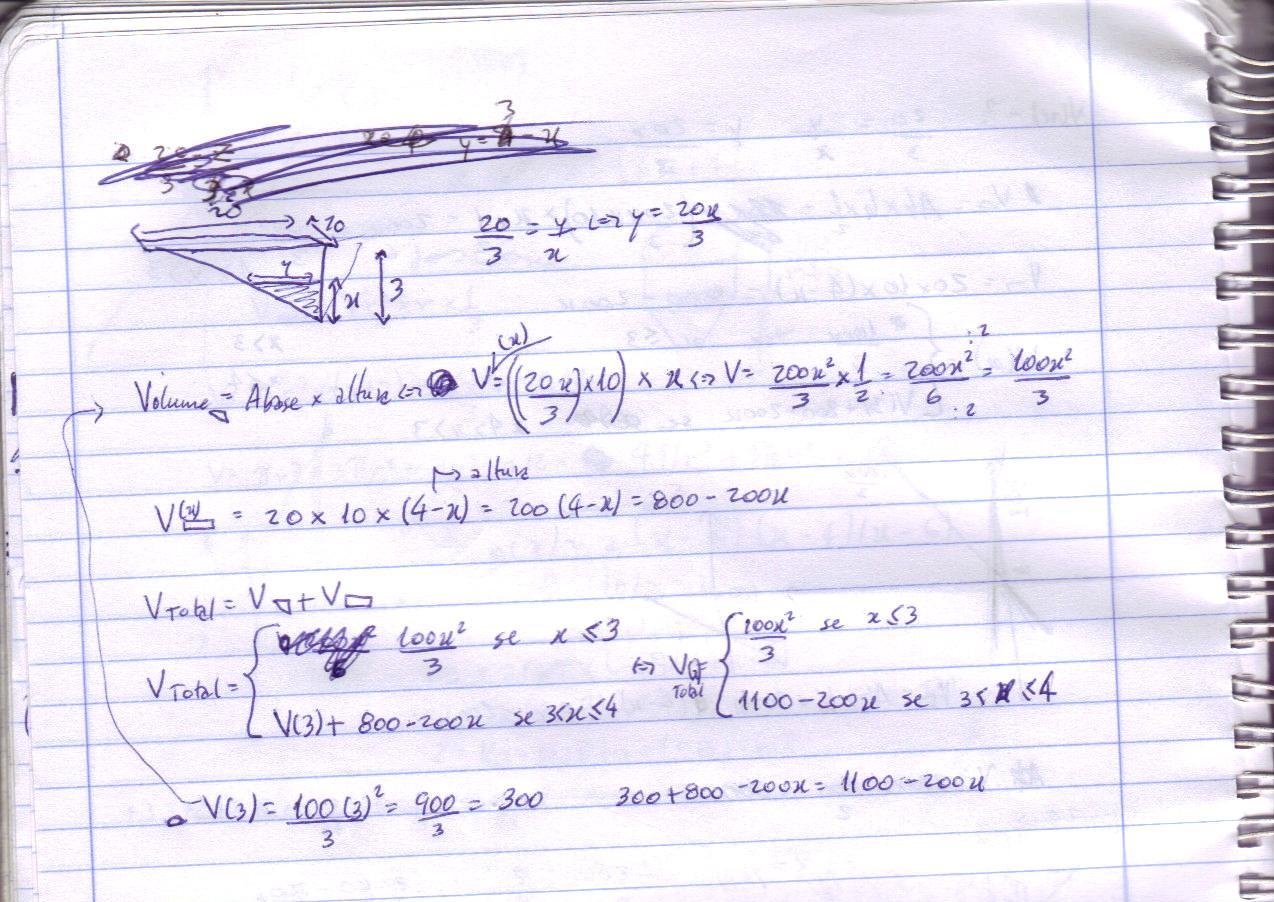 20
10
20/3 = y/x <=> y = 20x/3
y
x
3
(x)
Volume▽ = Abase × altura <=> V = ((20x/3) × 10) × x <=> V = 200x²/3 × 1/2 = 200x²/6 = 100x²/3
:2
:2
↦ altura
V(x)▭ = 20 × 10 × (4-x) = 200 (4-x) = 800 - 200x
VTotal = V▽ + V▭
VTotal = { 100x²/3 se x ≤ 3 <=> V(x)Total = { 100x²/3 se x ≤ 3
V(3) + 800 - 200x se 3 < x ≤ 4 1100 - 200x se 3 < x ≤ 4
V(3) = 100(3)²/3 = 900/3 = 300 300 + 800 - 200x = 1100 - 200x